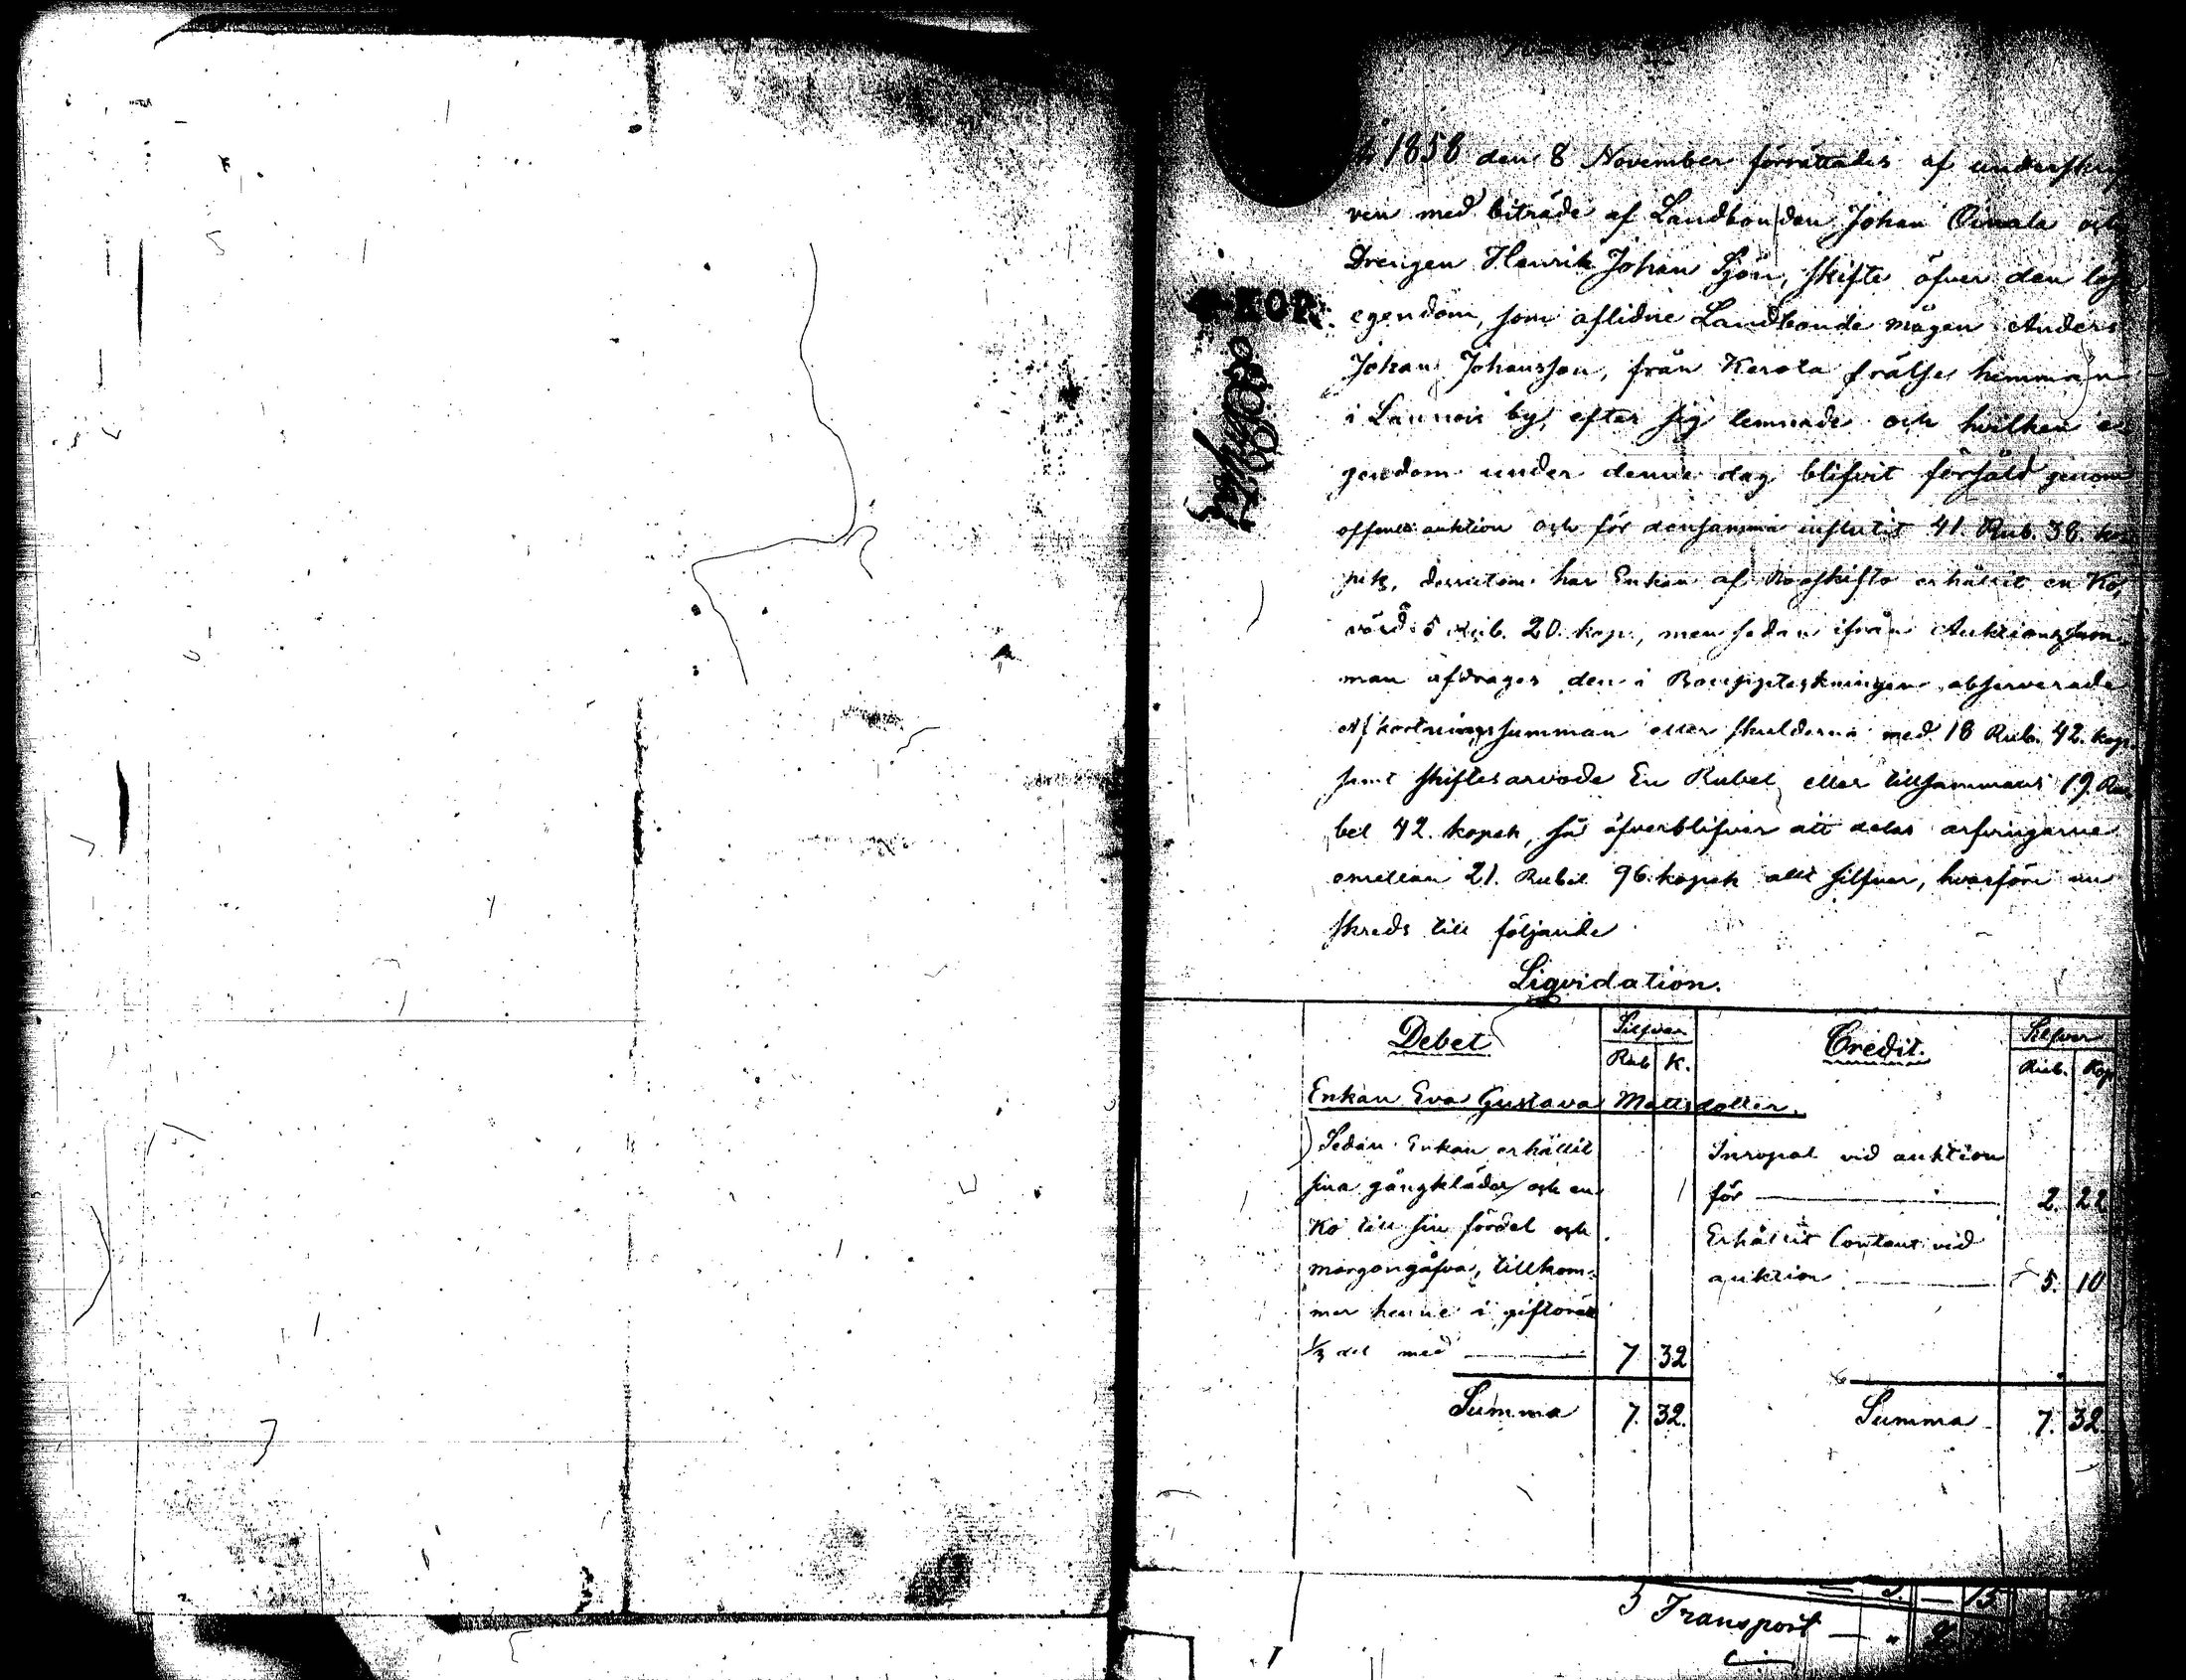 1858 den 8 November förrättades af underskrif
ven med biträde af Landbonden Johan Oinala och
Drengen Henrik Johan Sjön, skifte öfver den lös
egendom, som aflidne Landbonde mågen Anders
Johan Johansson, från Kerola frälse hemman
i Lannois by, efter sig lemnade och hvilken e
gendom under denne dag blifvit försåld genom
offentl: auktion och för densamma influtit 41. Rub. 38. ko
pek, dessutom har Enkan af Boo skifto erhållit en Ko,
värd 5 Rub. 20. kop., men sedan ifrån Auktions sum
man afdrages den i Bouppteckningen observerade
Afkortnings summan eller skulderna med 18 Rub. 42. kop
samt skiftesarvode En Rubel, eller tillsammans 19 Ru
bel 42. kopek, så öfverblifver att delas arfvingarne
emellan 21. Rubel 96. kopek allt silfver, hvarföre nu
skreds till följande
Liqvidation.
Debet Silfver Credit. Silfver
Rub K. Rub. Kop
Enkan Eva Gustava Mattsdotter.
Sedan Enkan erhållit
sina gångkläder och en
Ko till sin fördel och
morgongåfva, tillkom-
mer henne i giftorätt
1/3 del med 7 32
Summa 7. 32.
Inropat vid auktion
för 2. 22
Erhållit Contant vid
auktion 5. 10
Summa 7. 32
15
Transport